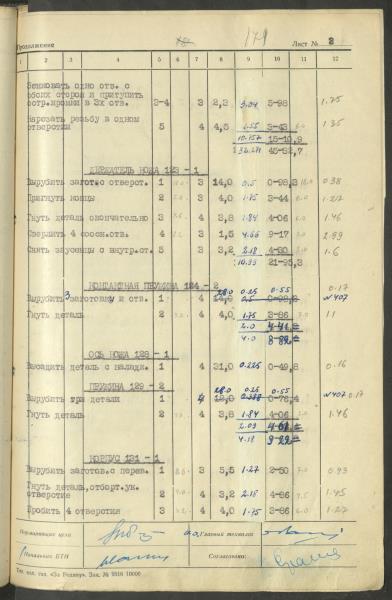 Продолжение 179 Лист № 2
1 2 3 4 5 6 7 8 9 10 11 12
Зенковать одно отв. с
обоих сторон и притупить
остр.кромки в 3х отв. 3-4 3 2,2 3.04 5-98 1.75
Нарезать резьбу в одном
отверстии 5 4 4,5 1.55 3-43 1.35
10.157 15-10,9
ДЕРЖАТЕЛЬ НОЖА 123 - 1
Вырубить загот.с отверст. 1 3 14,0 0.5 0-98,3 0.38
Пригнуть концы 2 3 4,0 1.75 3-44 1.27
Гнуть детали окончательно 3 3 3,8 1.84 4-06 1.46
Сверлить 4 соосн.отв. 4 3 1,5 4.66 9-17 2.99
Снять заусенцы с внутр.ст. 5 3 3,2 2.18 4-30 1.6
10.93 21-95,3
КОНТАКТНАЯ ПРУЖИНА 124 - 2 28.0 0.25 0.55 0.17
Вырубить 3 заготовку и отв. 1 4 14,0 0.5 0-98,8 w407
Гнуть деталь 2 4 4,0 1.75 3-86 1.1
2.0 4-41
4.0 8-82
ОСЬ НОЖА 128 - 1
Высадить деталь с наладк. 1 4 31,0 0.225 0-49,8 0.16
ПРУЖИНА 129 - 2 28.0 0.25 0.55
Вырубить три детали 1 4 18,0 0.388 0-76,4 w407 0.17
Гнуть деталь 2 4 3,8 1.84 4-06 1.46
2.09 4-61
4.18 9-22
КОРПУС 131 - 1
Вырубить заготов.с перев. 1 3 5,5 1.27 2-50 0.93
Гнуть деталь,отборт.ук.
отверстие 2 4 3,2 2.18 4-86 1.45
Пробить 4 отверстия 3 4 4,0 1.75 3-86 1.27
Нормировщик цеха
Гл. технолог
Начальник БТН
Согласовано:
Тип. изд. газ. «За Родину». Зак. № 5516 10000